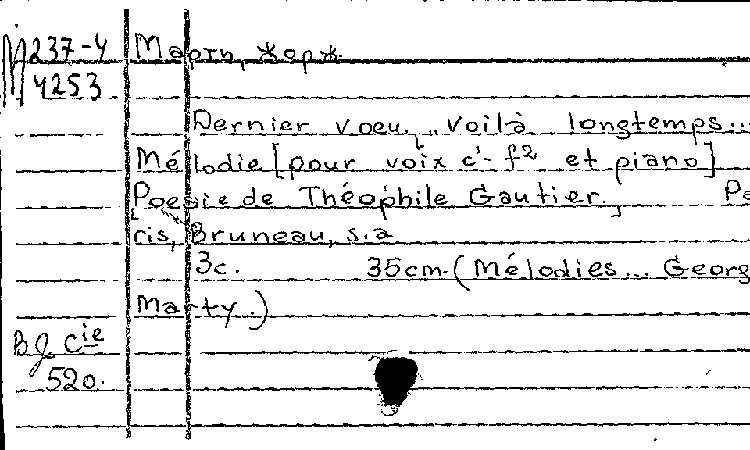 М237-4 Марти, Жорж.
4253
Dernier voeu. „Voilà longtemps...
Mélodie [pour voix c'- f2 et piano]
[Poesie de Théophile Gautier.] Pa
ris, Bruneau, s.a
3c. 35cm. (Mélodies... Georg
Marty.)
B.J. Cie
520.